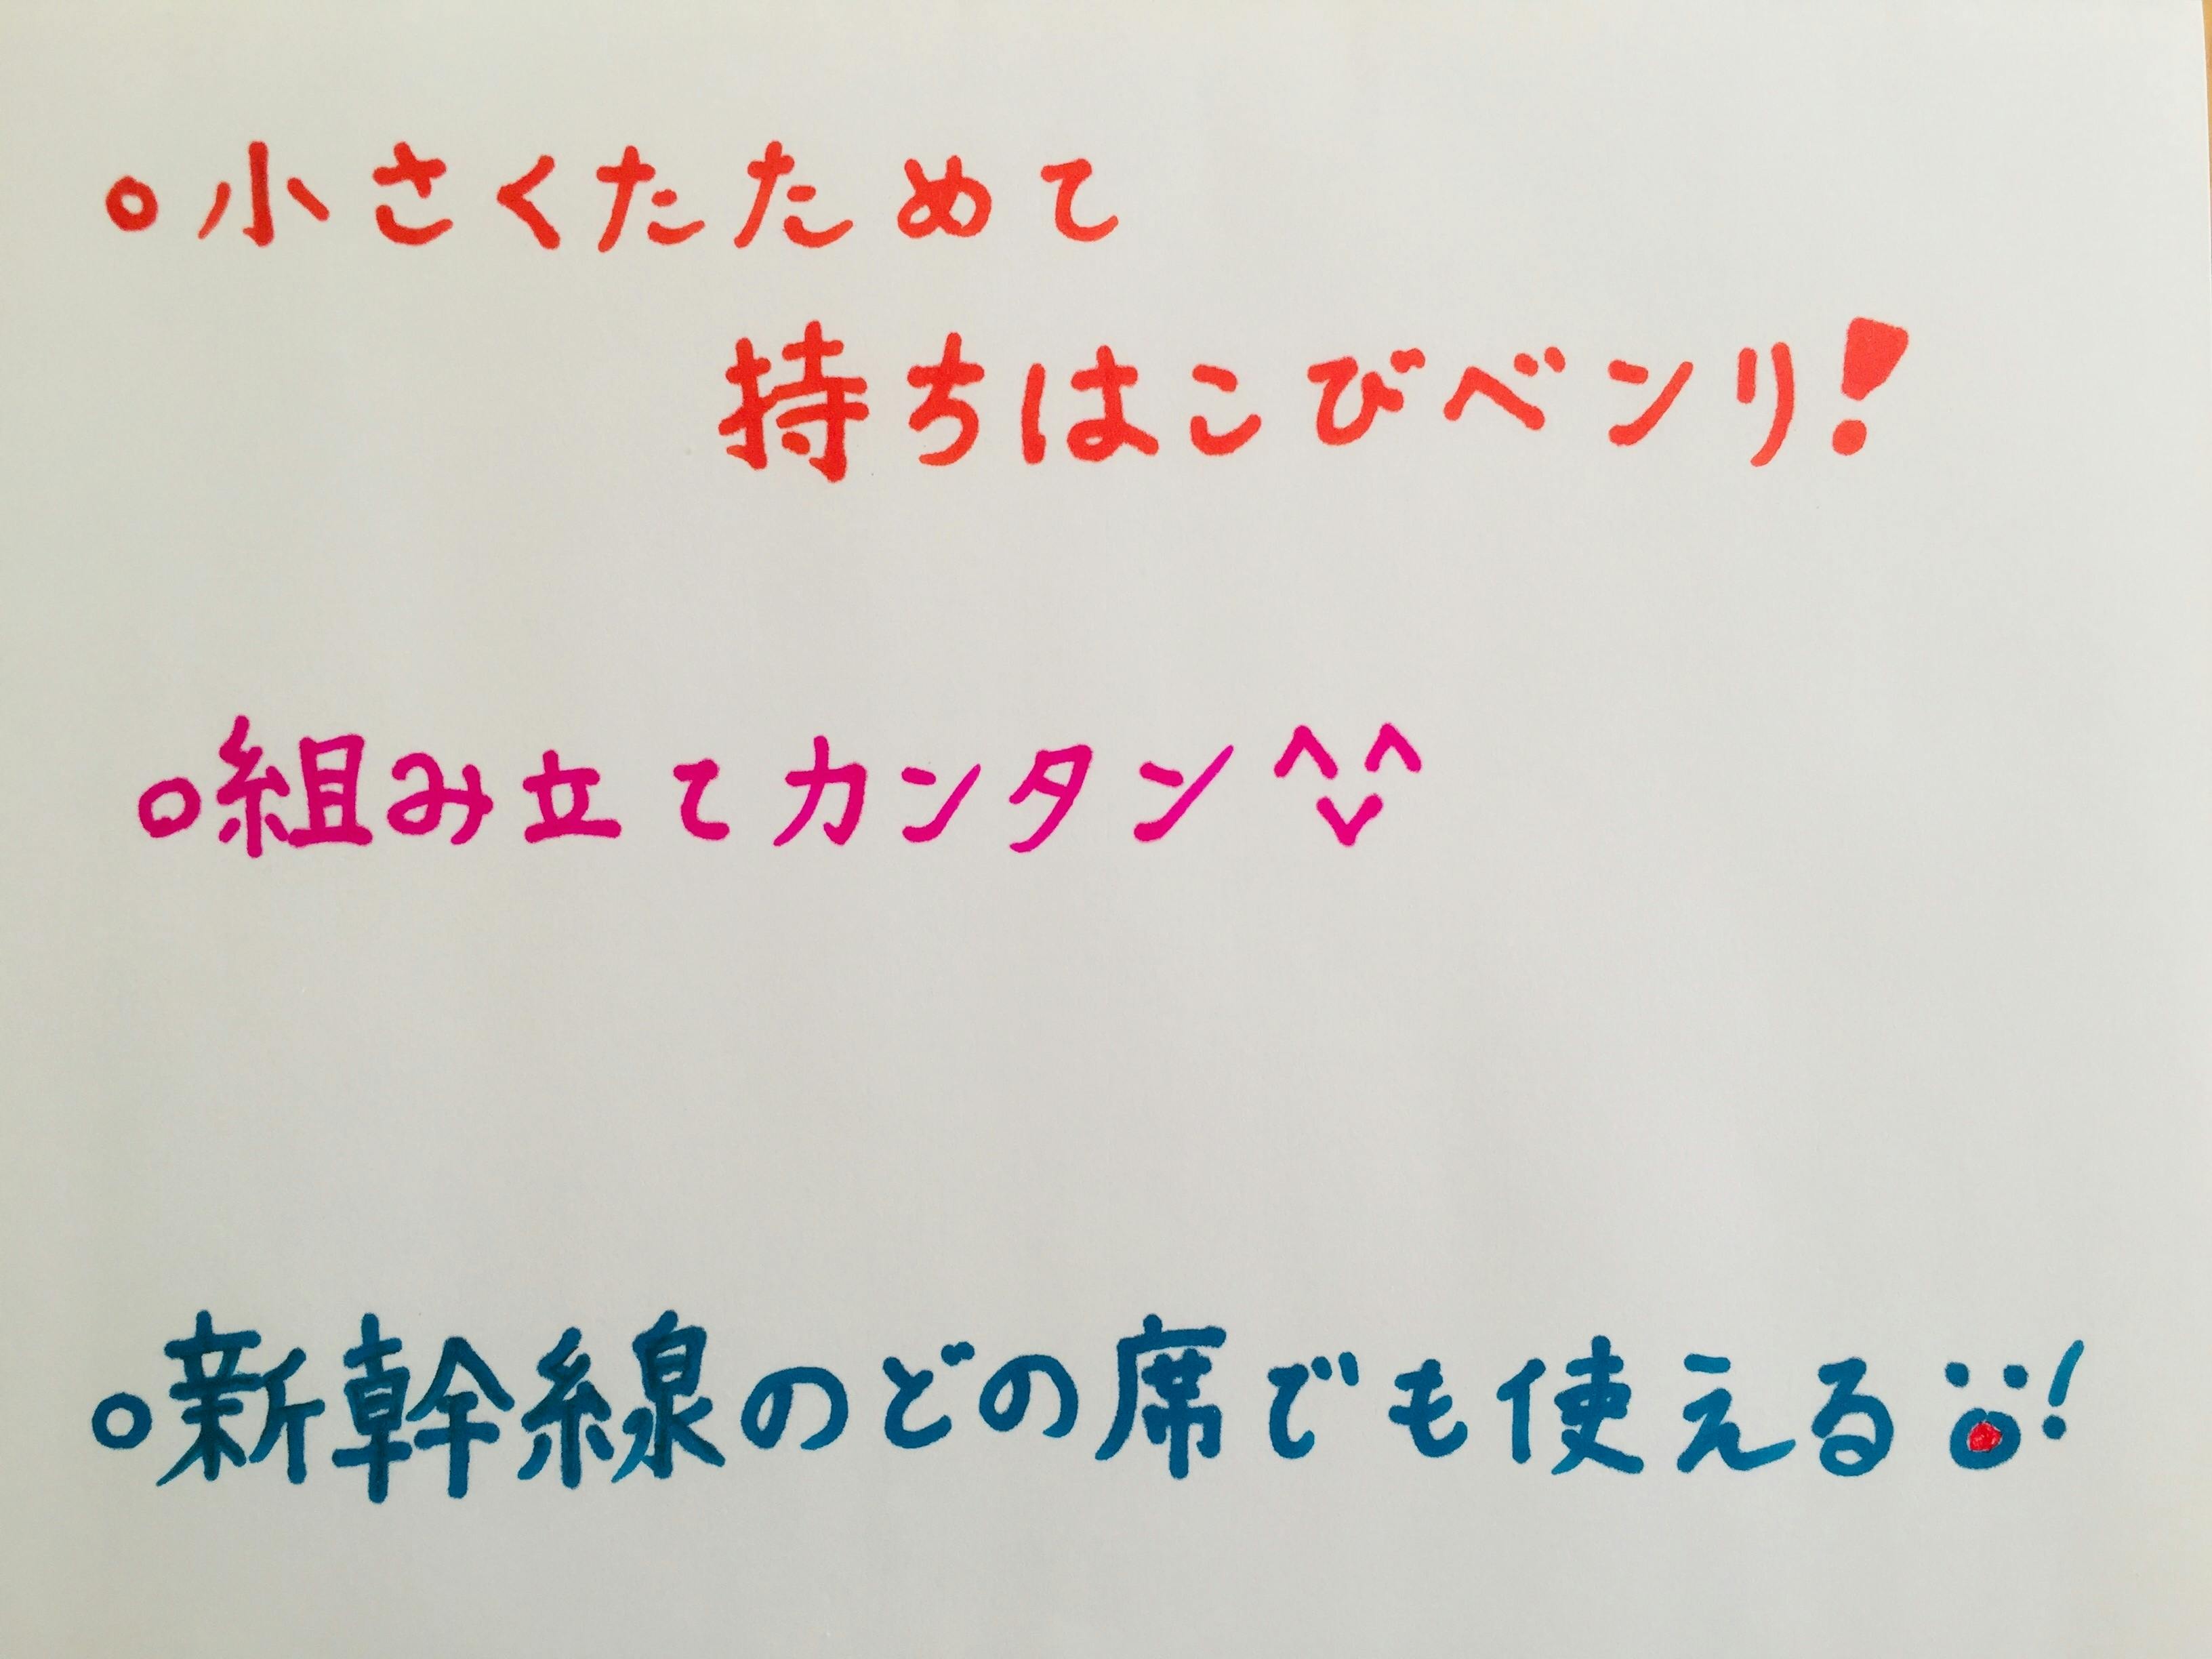 ○小さくたためて
持ちはこびベンリ!
○組み立てカンタン^^
○新幹線のどの席でも使える!